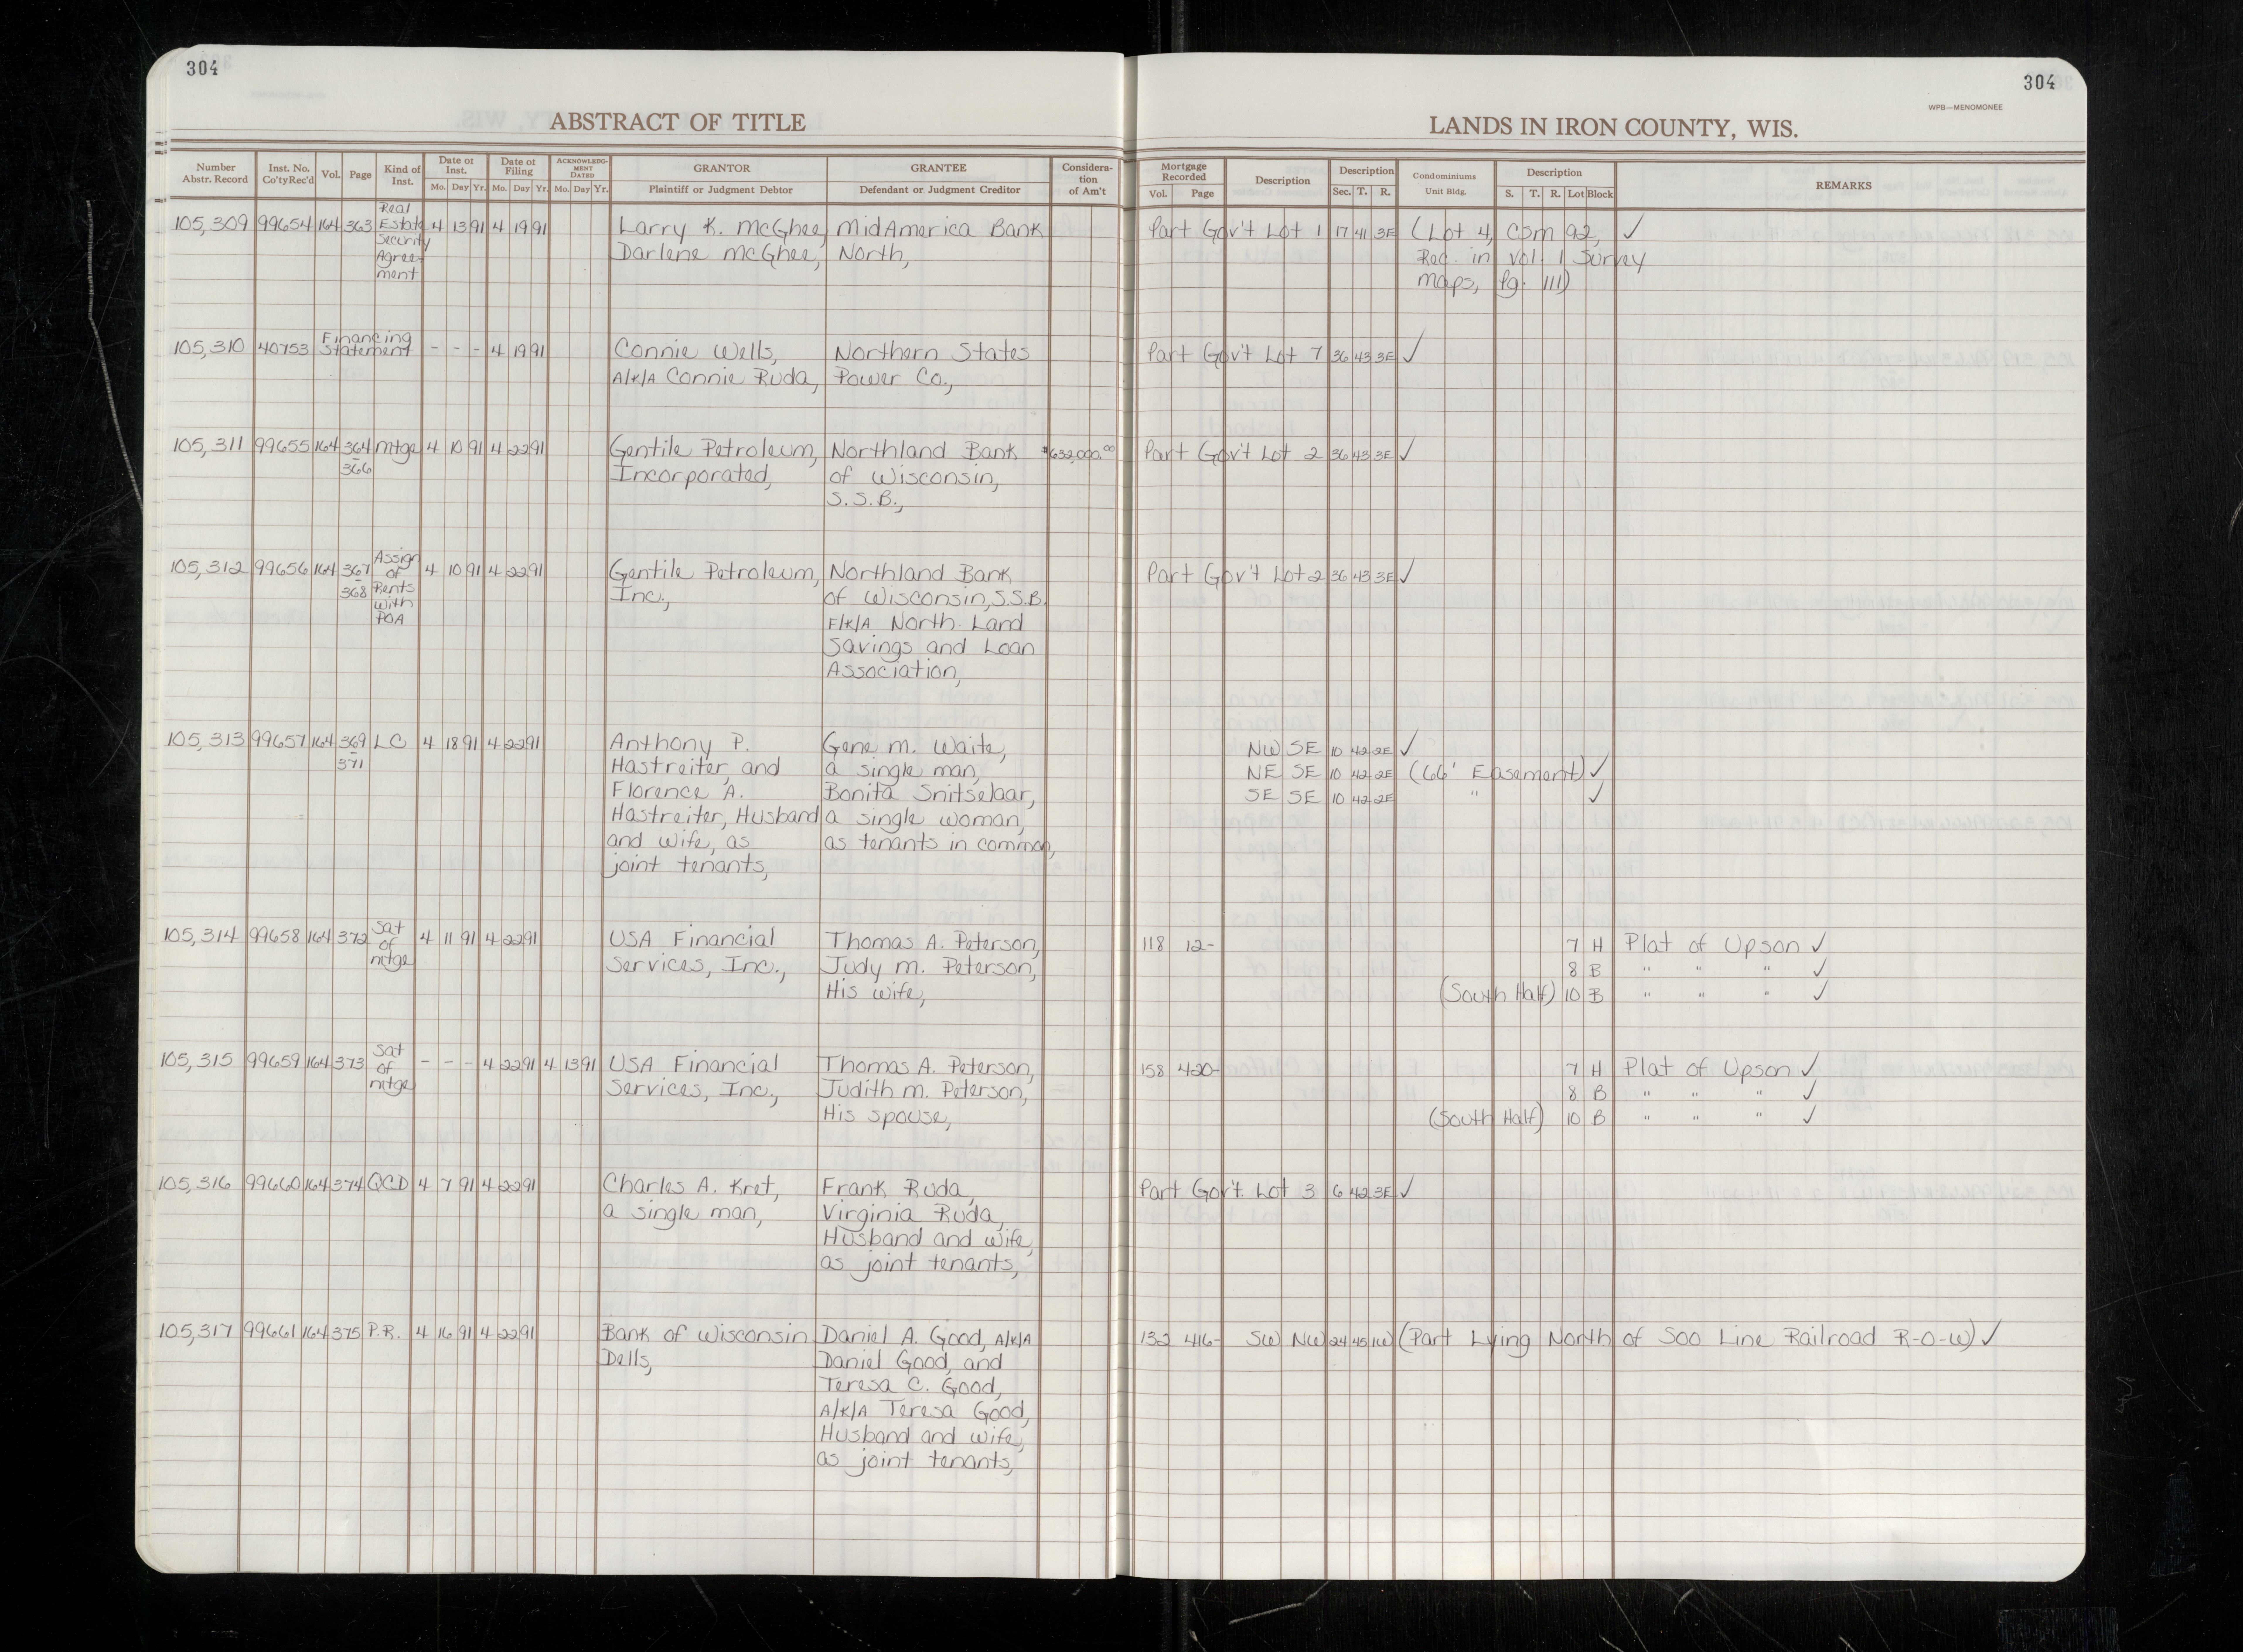 304
304
WPB—MENOMONEE
ABSTRACT OF TITLE
LANDS IN IRON COUNTY, WIS.
Number Abstr. Record Inst. No. Co'ty Rec'd Vol. Page Kind of Inst. Date of Inst. Mo. Day Yr. Date of Filing Mo. Day Yr. ACKNOWLEDGMENT DATED Mo. Day Yr. GRANTOR Plaintiff or Judgment Debtor GRANTEE Defendant or Judgment Creditor Consideration of Am't Mortgage Recorded Vol. Page Description Description Sec. T. R. Condominiums Unit Bldg. Description S. T. R. Lot Block REMARKS
105,309 99654 164 363 Real Estate Security Agreement 4 13 91 4 19 91 Larry K. McGhee, MidAmerica Bank Part Gov't Lot 1 17 41 3E (Lot 4, CSM 92, ✓
Darlene McGhee, North, Rec. in Vol. 1 Survey
Maps, Pg. 111)
105,310 40753 Financing Statement - - - 4 19 91 Connie Wells, Northern States Part Gov't Lot 7 36 43 3E ✓
A/K/A Connie Ruda, Power Co.,
105,311 99655 164 364 - 366 Mtge 4 10 91 4 22 91 Gentile Petroleum, Northland Bank $632,000.00 Part Gov't Lot 2 36 43 3E ✓
Incorporated, of Wisconsin,
S.S.B.,
105,312 99656 164 367 - 368 Assign of Rents with POA 4 10 91 4 22 91 Gentile Petroleum, Northland Bank Part Gov't Lot 2 36 43 3E ✓
Inc., of Wisconsin, S.S.B.
F/K/A North Land
Savings and Loan
Association,
105,313 99657 164 369 - 371 LC 4 18 91 4 22 91 Anthony P. Gene M. Waite, NW SE 10 42 2E ✓
Hastreiter, and a single man, NE SE 10 42 2E (66' Easement) ✓
Florence A. Bonita Snitselaar, SE SE 10 42 2E " ✓
Hastreiter, Husband a single woman,
and Wife, as as tenants in common,
joint tenants,
105,314 99658 164 372 Sat of Mtge 4 11 91 4 22 91 USA Financial Thomas A. Peterson, 118 12- 7 H Plat of Upson ✓
Services, Inc., Judy M. Peterson, 8 B " " " ✓
His Wife, (South Half) 10 B " " " ✓
105,315 99659 164 373 Sat of Mtge - - - 4 22 91 4 13 91 USA Financial Thomas A. Peterson, 158 420- 7 H Plat of Upson ✓
Services, Inc., Judith M. Peterson, 8 B " " " ✓
His spouse, (South Half) 10 B " " " ✓
105,316 99660 164 374 QCD 4 7 91 4 22 91 Charles A. Kret, Frank Ruda, Part Gov't. Lot 3 6 42 3E ✓
a single man, Virginia Ruda,
Husband and Wife,
as joint tenants,
105,317 99661 164 375 P.R. 4 16 91 4 22 91 Bank of Wisconsin Daniel A. Good, A/K/A 132 416- SW NW 24 45 1W (Part Lying North of Soo Line Railroad R-O-W) ✓
Dells, Daniel Good, and
Teresa C. Good,
A/K/A Teresa Good,
Husband and Wife,
as joint tenants,